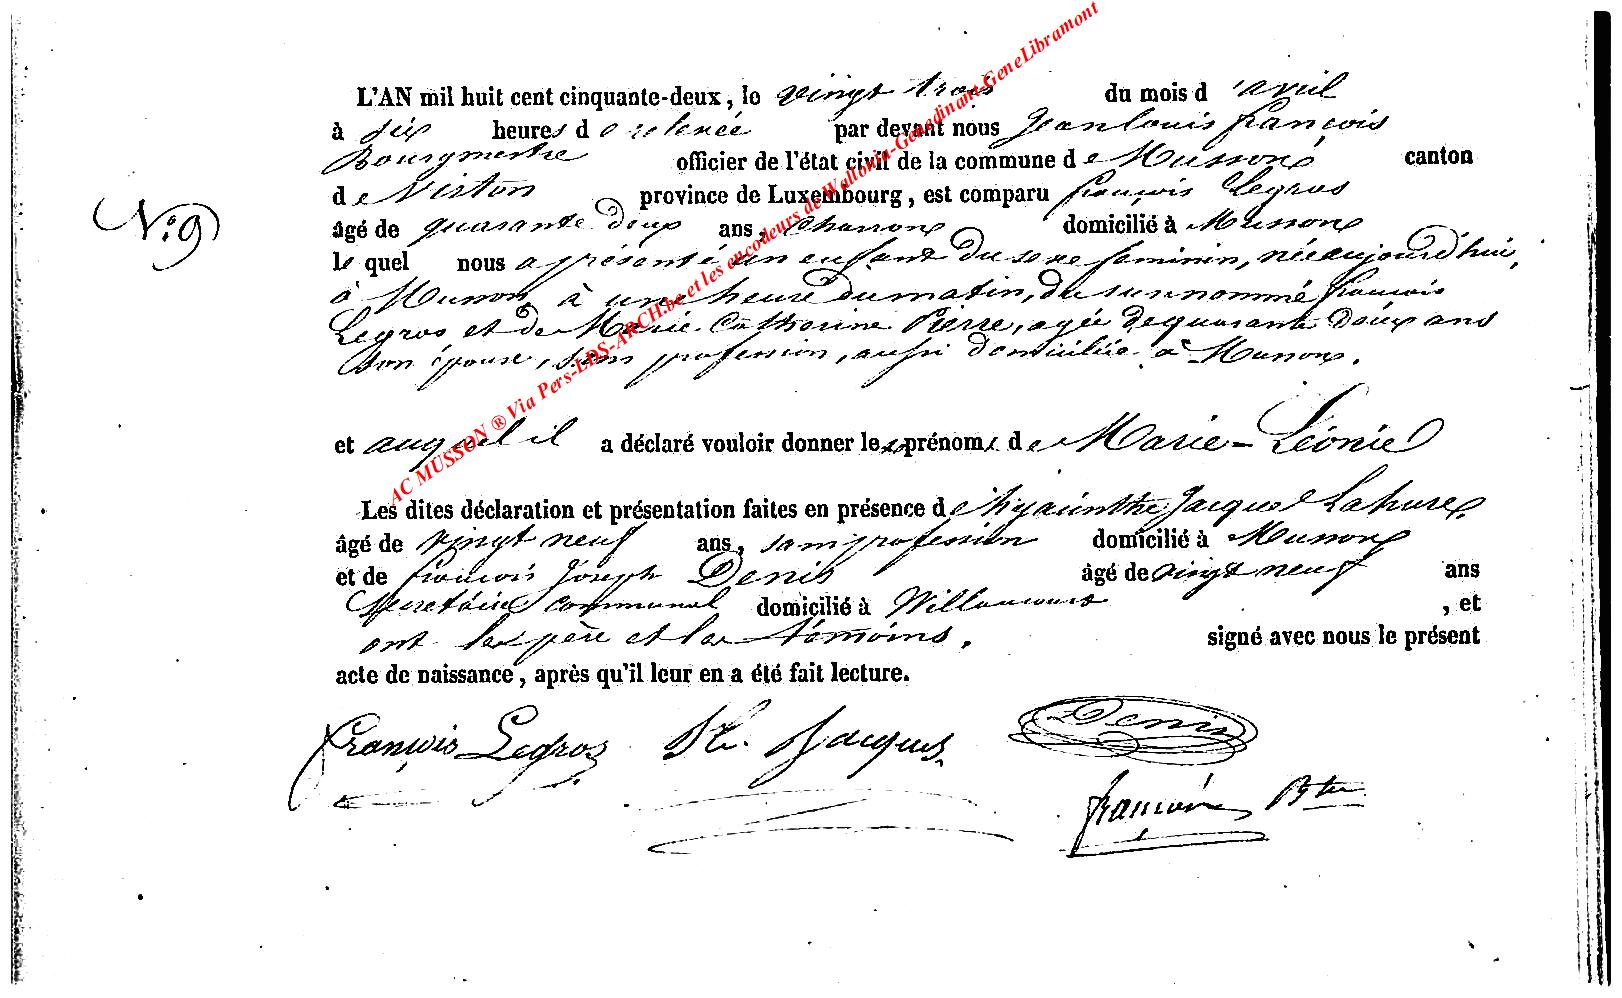 L'AN mil huit cent cinquante-deux, le vingt trois du mois d'avril
à six heures de relevée par devant nous Jean Louis françois
Bourgmestre officier de l'état civil de la commune de Musson canton
de Virton province de Luxembourg, est comparu françois Legros
N.º 9
âgé de quarante deux ans, Charron domicilié à Musson
le quel nous a présenté un enfant du sexe féminin, née aujourd'hui,
à Musson, à une heure du matin, du surnommé françois
Legros et de Marie Catherine Pierre, agée de quarante deux ans
son épouse, sans profession, aussi domiciliée à Musson.
et auquel il a déclaré vouloir donner les prénoms de Marie-Léonie
Les dites déclaration et présentation faites en présence de hyacinthe Jacques Lahure
âgé de vingt neuf ans, sans profession domicilié à Musson
et de françois Joseph Denis âgé de vingt neuf ans
Secretaire communal domicilié à Willancourt, et
ont le père et les témoins, signé avec nous le présent
acte de naissance, après qu'il leur en a été fait lecture.
françois Legros H. Jacques Denis
françois Btre
AC MUSSON ® Via Pers-LDS-ARCH.be et les encodeurs de Wallonia-Genedinant-GeneLibramont